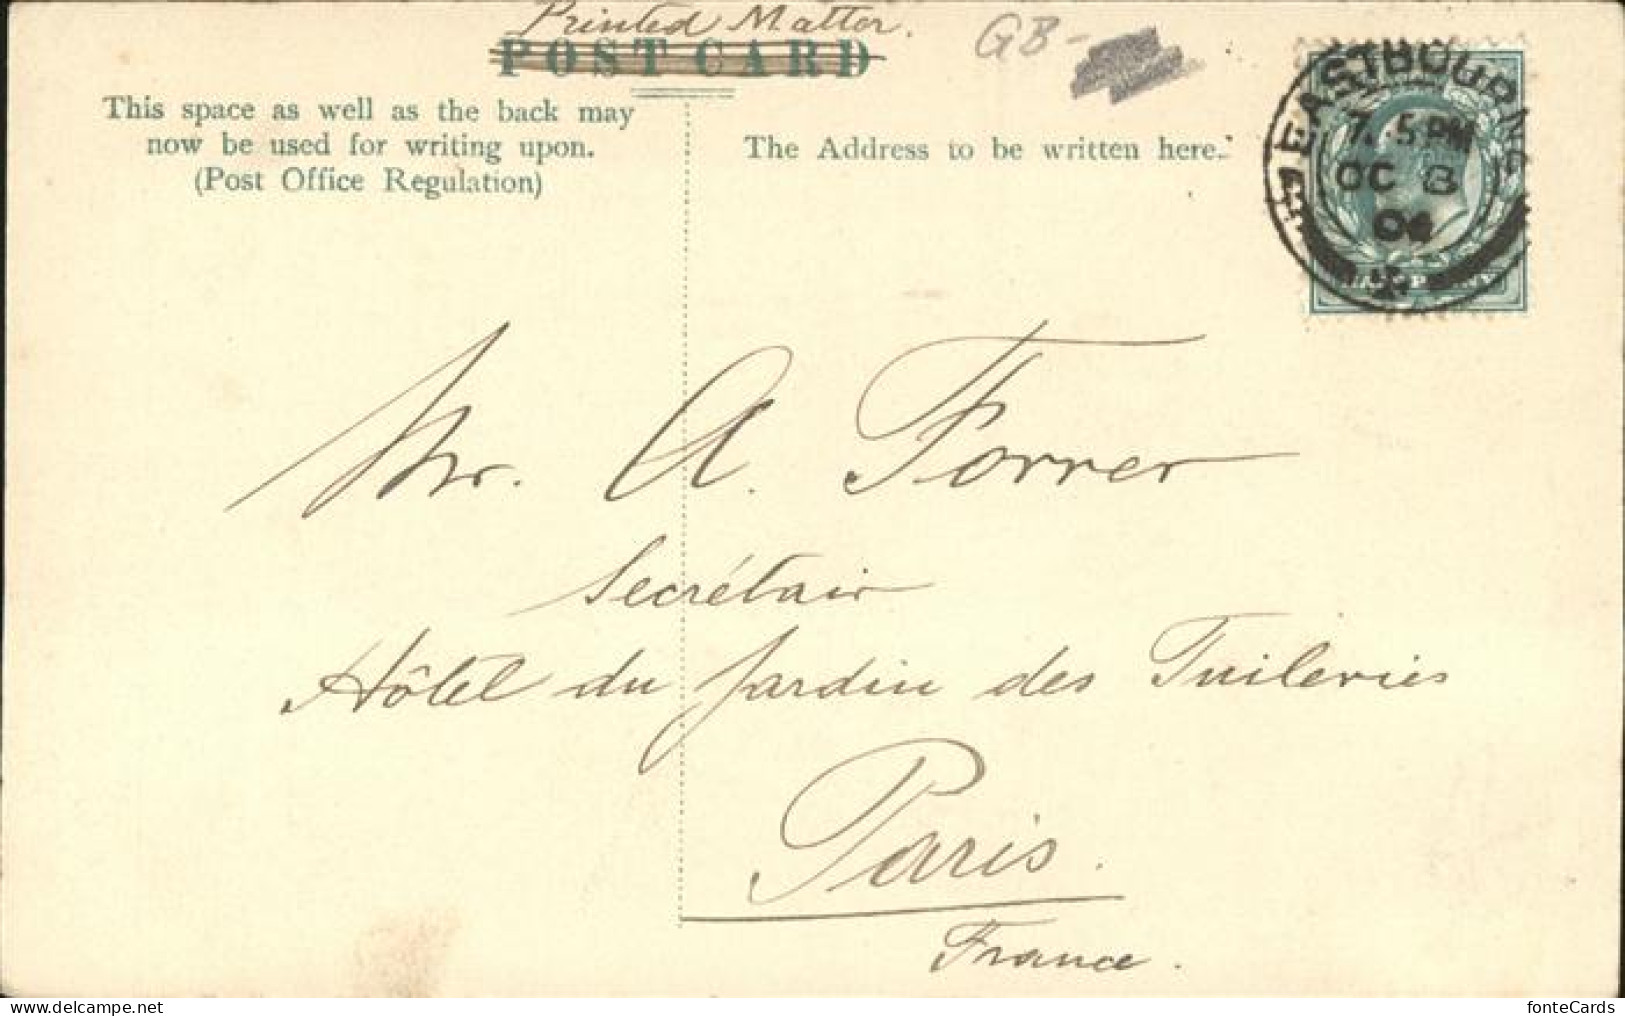 Printed Matter.
POST CARD
GB -
This space as well as the back may
now be used for writing upon.
(Post Office Regulation)
The Address to be written here.
EASTBOURNE
7. 5 PM
OC 8
04
HALF PENNY
Mr. A. Forrer
Secrétair
Hôtel du Jardin des Tuileries
Paris.
France.
fonteCards